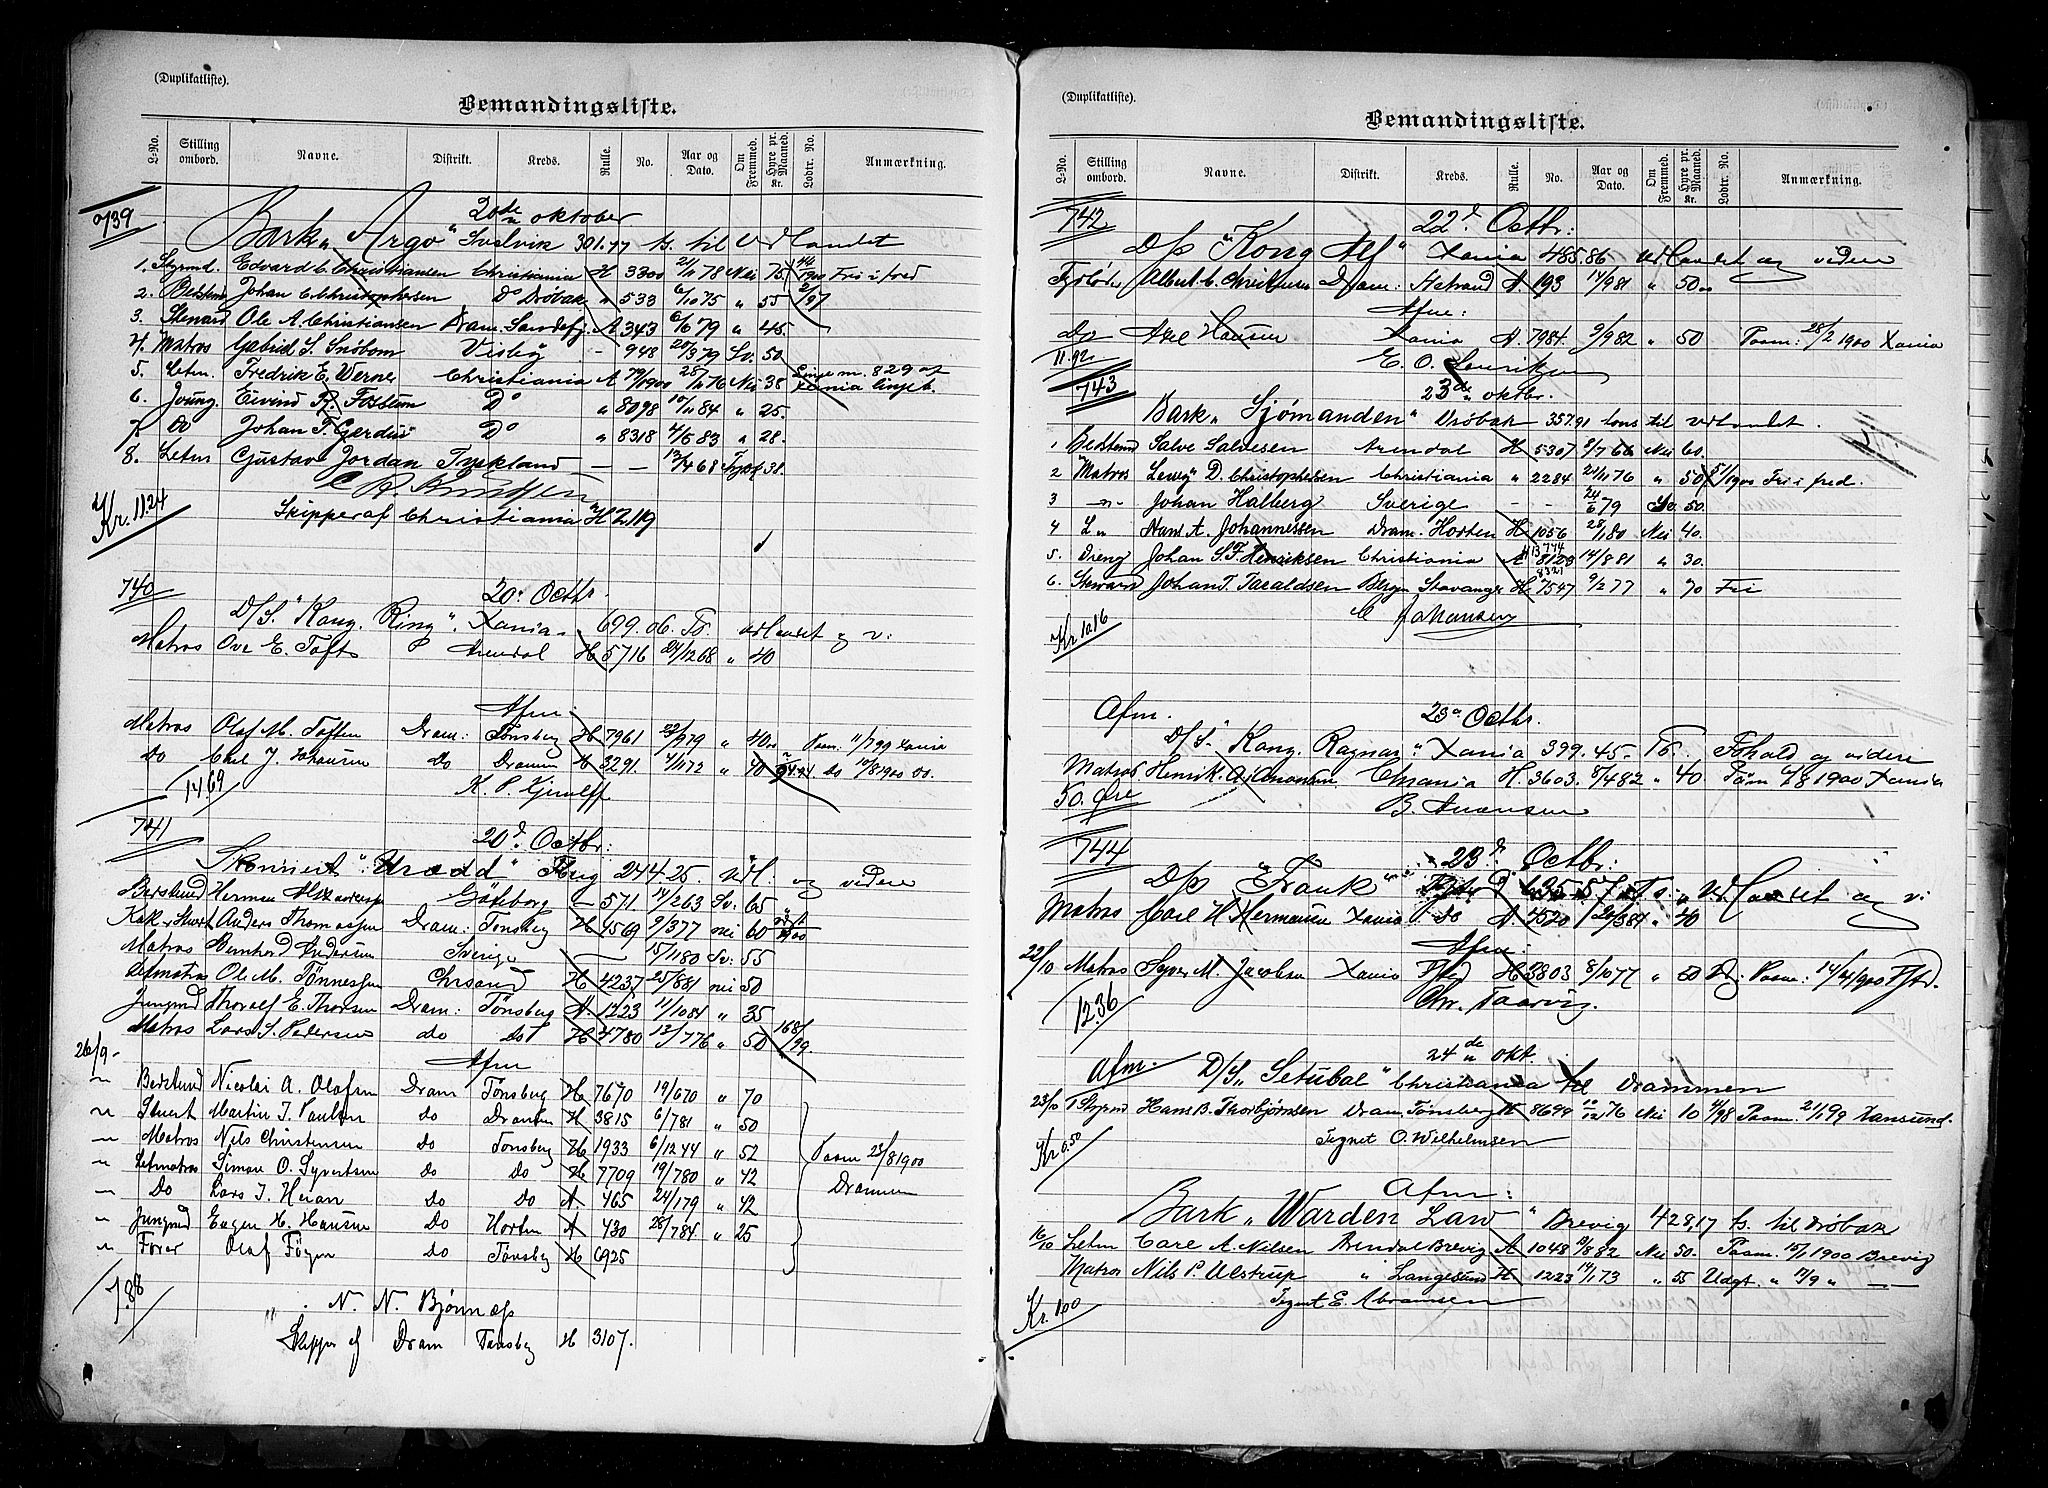 (Duplikatliste).
Bemandingsliste.
L-No. Stilling ombord. Navne. Distrikt. Kreds. Rulle. No. Aar og Dato. Om Fremmed. Hyre pr. Maaned. Kr. Lodtr. No. Anmærkning.
739 20de oktober
Bark „Argo" Svelvik 301.77 ts. til Udlandet
1. Styrmd. Edvard C. Christiansen Christiania H 3300 21/11 78 Nei 75 Fri i fred
2. Bedstmd Johan C. Christophersen Do Drøbak " 533 6/10 75 " 55 2/97
3. Steward Ole A. Christiansen Dram. Sandefj. A 343 6/6 79 " 45.
4. Matros Gabriel S. Snöbom Visby - 948 20/3 79 Sv. 50
5. Letm. Fredrik E. Werner Christiania A 79/1900 28/11 76 Nei 38
6. Joung. Eivind R. Fossum Do " 8098 10/11 84 " 25.
7. Do Johan F. Gerdin Do " 8318 4/5 83 " 28.
8. Letm Gustav Jordan Tyskland — — 12/4 68 Tysk 38.
C. R. Knudsen
Kr. 11.24 Skipper af Christiania H 2119
740 20. Octbr.
D/S. "Kong Ring". Xania. 699.06. Ts. Udlandet og v:
Matros Ove E. Toft Arendal H 5716 24/12 68 " 40
Afm.
Matros Olaf M. Toften Dram: Tønsberg H 7961 22/9 79 " 40 Paam. 11/7 99 Xania
Do Carl J. Johansen do Drammen H 3291. 4/11 72 " 40 do 10/8 1900 do.
14.69 K. P. Gjrulff
741 20d Octbr:
Skonnert "Urædd" Tbrg 244.25. Udl. og videre
Bestmd Herman Göteborg - 571 14/2 63 Sv. 65
Kok & Stuert Anders Thomassen Dram: Tønsberg H 4569 9/3 77 nei 60
Matros Bernhard Andersen Sverige 15/11 80 Sv: 55
Letmatros Ole M. Tönnessen Chrsand H 4237 25/8 81 nei 50
Jungmd Thoralf E. Thorsen Dram: Tönsberg A. 1223 11/10 84 " 35
Matros Lars S. Pedersen do do H 4780 13/7 76 " 50 168/99
26/9 - Afm
" Bestmd Nicolai A. Olafsen Dram Tönsberg H 7670 19/6 70 " 70
" Stuert Martin J. Paulsen do Drammen H 3815 6/7 81 " 50
" Matros Nils Christensen do Tönsberg H 1933 6/12 44 " 52 Paam 23/8 1900
" Letmatros Simon O. Syvertsen do do H 7709 19/7 80 " 42 Drammen
" Do Lars J. Heian do do A. 465 24/1 79 " 42
" Jungmd Eugen H. Hansen do Horten A 430 28/7 84 " 25
" Fører Olaf Föyen do Tönsberg H 6925
7.88
N. N. Bjönnæss
Skipper af Dram Tönsberg H 3107.
(Duplikatliste).
Bemandingsliste.
L-No. Stilling ombord. Navne. Distrikt. Kreds. Rulle. No. Aar og Dato. Om Fremmed. Hyre pr. Maaned. Kr. Lodtr. No. Anmærkning.
742 22d Octbr:
D/S "Kong Alf" Xania 485.86 Udlandet og videre
Fyrbøder Albert C. Henriksen Dram: A. 193 14/9 81 " 50
Afm:
Do Axel Hansen Xania A. 7984. 9/9 82 " 50 Paam: 28/2 1900 Xania
11.92
E. O.
743 23de oktbr.
Bark „Sjømanden" Drøbak 357.91 tons til Udlandet.
1 Bedstmd Salve Salvesen Arendal H 5307 8/7 66 Nei 60.
2 Matros Leney D. Christophersen Christiania " 2284 21/11 76 " 50 57/1900 Fri i fred.
3 -"- Johan Halberg Sverige - - 24/6 79 Sv. 50.
4 L " Hans A. Johannessen Dram. Horten H 1056 28/1 80 Nei 40.
5. Dreng Johan S. F. Henriksen Christiania A 8128 14/8 81 " 30.
6. Steward Johan T. Taraldsen Bergen Stavanger H 7547 9/2 77 " 70 Fri
Kr 10.16 C Johansen
Afm. 23d Octbr.
D/S. "Kong Ragnar". Xania 399.45. Ts. Fshald og videre
Matros Henrik A. Xania H. 3603. 8/4 82 " 40 Paam 4/8 1900 Xania
50. Øre B. Anonsen
744 23d Octbr:
D/S "Frank" 635.57 Ts. Udlandet og v:
Matros Carl H. Hermansen Xania do A. 4520 21/3 84 " 40
Afm:
22/10 Matros Syver M. Jacobsen Xania Ffstd H 3803 8/10 77 " 50 D: Paam: 14/4 1900 Ffstd.
12.36 Chr. Taarvig.
24de okt.
Afm. D/S „Setubal" Christiania til Drammen
23/10 1 Styrmd Hans B. Thorbjørnsen Dram Tønsberg H 8699 10/12 76 Nei 10 4/98 Paam. 2/1 99 Xansund.
Kr 0.50 Tegnet O. Wilhelmsen
Afm:
Bark „Warden Law" Brevig 428,17 ts. til Drøbak
16/10 Letm Carl A. Nilsen Arendal Brevig A 1048 19/8 82 Nei 50. Paam. 15/1 1900 Brevig
Matros Nils P. Ulstrup " Langesund H 1223 14/1 73 " 55 Udgt. " 17/9 " —
Kr. 1.00 Tegnet E. Abramsen